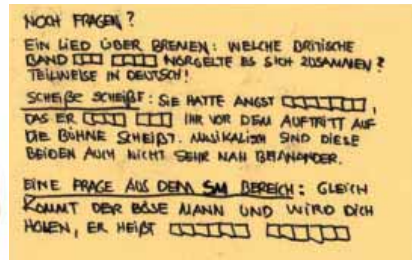 NOCH FRAGEN?
EIN LIED ÜBER BREMEN: WELCHE BRITISCHE
BAND NÖRGELTE ES SICH ZUSAMMEN?
TEILWEISE IN DEUTSCH!
SCHEIßE SCHEIßT: SIE HATTE ANGST,
DAS ER IHR VOR DEM AUFTRITT AUF
DIE BÜHNE SCHEIßT. MUSIKALISCH SIND DIESE
BEIDEN AUCH NICHT SEHR NAH BEIEINANDER.
EINE FRAGE AUS DEM SM BEREICH: GLEICH
KOMMT DER BÖSE MANN UND WIRD DICH
HOLEN, ER HEIßT